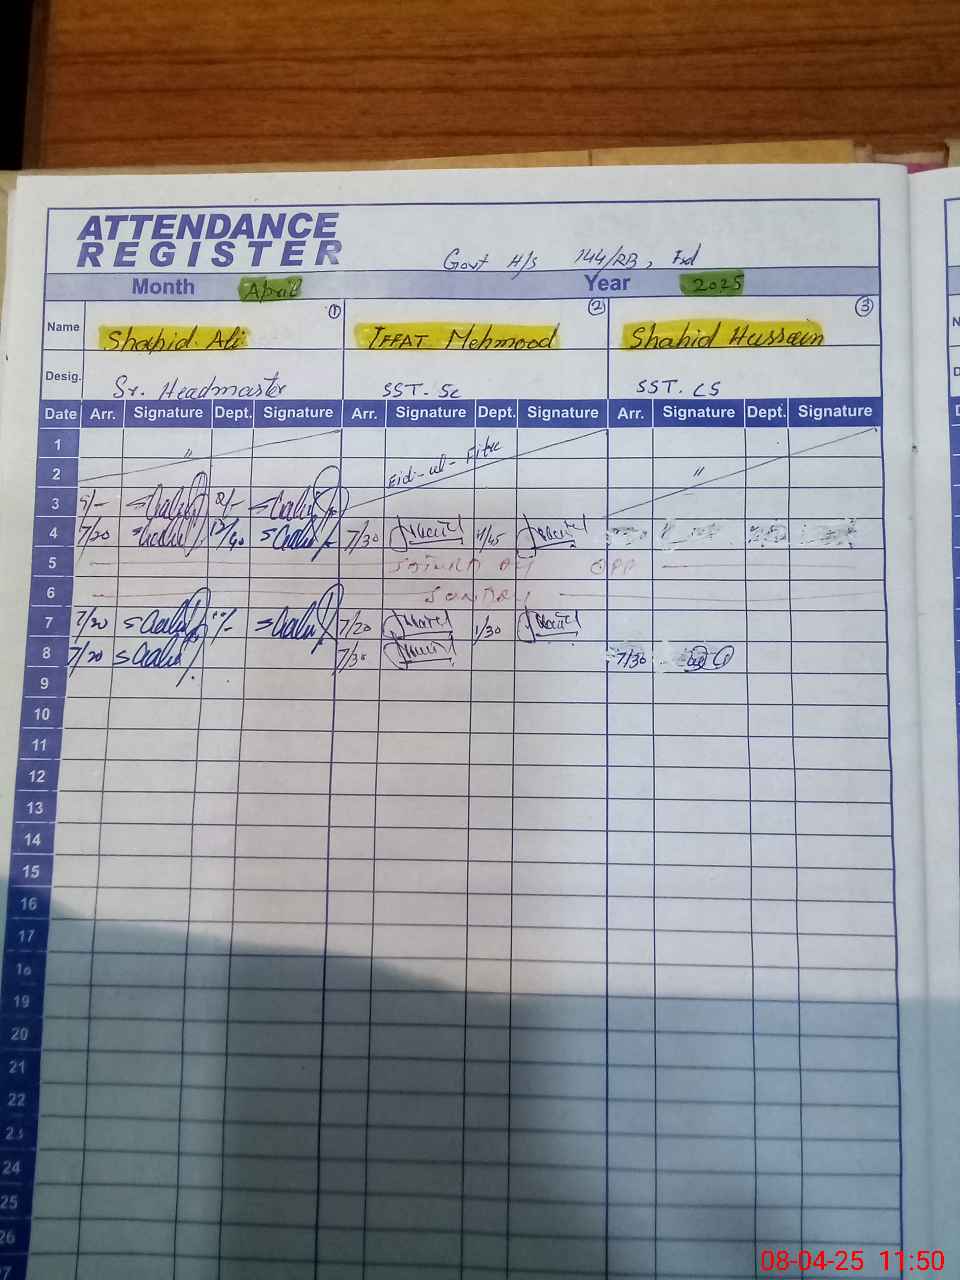 ATTENDANCE
REGISTER
Govt H/S 144/RB, Fsd
Month April Year 2025
① ② ③
Name Shahid Ali IFFAT Mehmood Shahid Hussain
Desig. Sr. Headmaster SST. Sc SST. CS
Date Arr. Signature Dept. Signature Arr. Signature Dept. Signature Arr. Signature Dept. Signature
1
2 〃 Eid-ul-Fitre 〃
3
4 7/20 12/40 7/30 1/45
5 SATURDAY OFF
6 SUNDAY
7 7/20 7/20 1/30
8 7/20 7/30 7/30
9
10
11
12
13
14
15
16
17
18
19
20
21
22
23
24
25
26
27
08-04-25 11:50